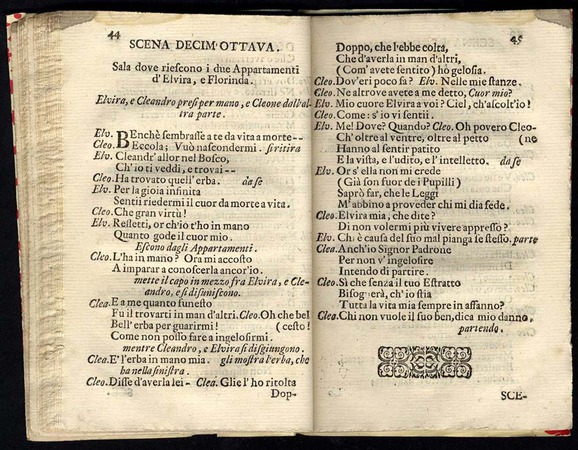 44
SCENA DECIM' OTTAVA.
Sala dove riescono i due Appartamenti
d'Elvira, e Florinda.
Elvira, e Cleandro presi per mano, e Cleone dall' al-
tra parte.
Elv. BEnchè sembrasse a te da vita a morte--
Cleo. Eccola; Vuò nascondermi. si ritira
Elv. Cleandr' allor nel Bosco,
Ch'io ti veddi, e trovai--
Cleo. Ha trovato quell' erba. da se
Elv. Per la gioia infinita
Sentii riedermi il cuor da morte a vita.
Cleo. Che gran virtù!
Elv. Restetti, or ch'io t'ho in mano
Quanto gode il cuor mio.
Escono dagli Appartamenti.
Cleo. L'ha in mano? Ora mi accosto
A imparar a conoscerla ancor'io.
mette il capo in mezzo fra Elvira, e Cle-
andro, e si disuniscono.
Clea. E a me quanto funesto
Fu il trovarti in man d'altri. Cleo. Oh che bel
Bell' erba per guarirmi! ( cesto!
Come non posso fare a ingelosirmi.
mentre Cleandro, e Elvira si disgiungono.
Clea. E' l'erba in mano mia. gli mostra l'erba, che
ha nella sinistra.
Cleo. Disse d'averla lei- Clea. Glie l' ho ritolta
Dop-
45
Doppo, che l'ebbe colta,
Che d'averla in man d'altri,
( Com' avete sentito ) hò gelosia.
Cleo. Dov'eri poco fa? Elv. Nelle mie stanze.
Cleo. Ne altrove avete a me detto, Cuor mio?
Elv. Mio cuore Elvira a voi? Ciel, ch'ascolt'io!
Cleo. Come: s' io vi sentii.
Elv. Me! Dove? Quando? Cleo. Oh povero Cleo-
Ch' oltre al ventre, oltre al petto ( ne
Hanno al sentir patito
E la vista, e l'udito, e l' intelletto. da se
Elv. Or s' ella non mi crede
( Già son fuor de i Pupilli )
Saprò far, che le Leggi
M'abbino a proveder chi mi dia fede.
Cleo. Elvira mia, che dite?
Di non volermi più vivere appresso?
Elv. Chi è causa del suo mal pianga se stesso. parte
Clea. Anch'io Signor Padrone
Per non v' ingelosire
Intendo di partire.
Cleo. Sì che senza il tuo Estratto
Bisognerà, ch' io stia
Tutta la vita mia sempre in affanno?
Clea. Chi non vuole il suo ben, dica mio danno.
partendo.
SCE-